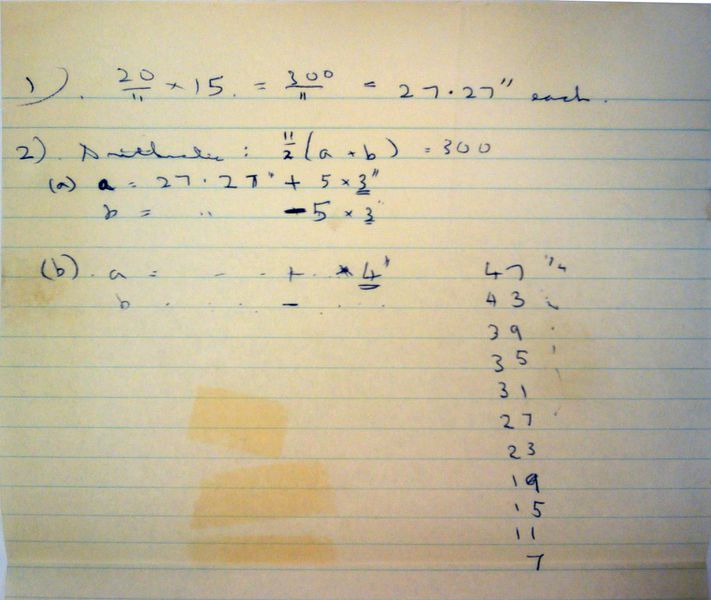 1). 20/11 × 15. = 300/11 = 27.27" each.
2). Arithmetic : 11/2 (a + b) = 300
(a) a = 27.27" + 5 × 3"
b = " - 5 × 3"
(b). a = - . + . . × 4" 47 1/4
b . . . . - . . . 43 "
39 "
35 '
31
27 '
23
19
15
11
7